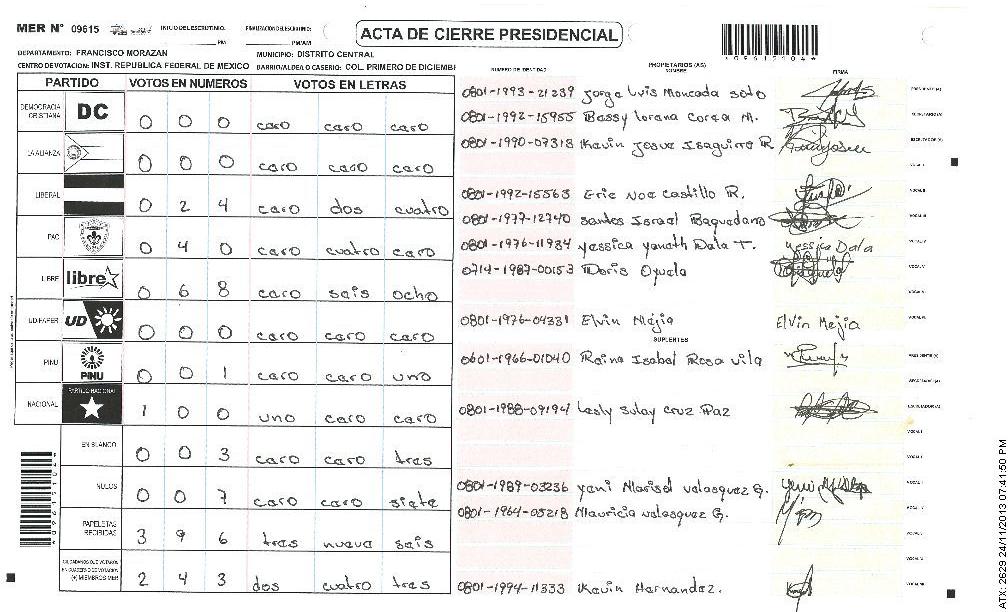 MER Nº 09615 INICIO DEL ESCRUTINIO: PM FINALIZACION DEL ESCRUTINIO: PM/AM
ACTA DE CIERRE PRESIDENCIAL
*09615104*
DEPARTAMENTO: FRANCISCO MORAZAN MUNICIPIO: DISTRITO CENTRAL
CENTRO DE VOTACION: INST. REPUBLICA FEDERAL DE MEXICO BARRIO/ALDEA O CASERIO: COL. PRIMERO DE DICIEMB
PARTIDO VOTOS EN NUMEROS VOTOS EN LETRAS
DEMOCRACIA CRISTIANA DC 0 0 0 caro caro caro
LA ALIANZA 0 0 0 caro caro caro
LIBERAL 0 2 4 caro dos cuatro
PAC 0 4 0 caro cuatro caro
LIBRE libre 0 6 8 caro sais ocho
UD-FAPER UD 0 0 0 caro caro caro
PINU PINU 0 0 1 caro caro uno
NACIONAL PARTIDO NACIONAL 1 0 0 uno caro caro
EN BLANCO 0 0 3 caro caro tras
NULOS 0 0 7 caro caro siete
PAPELETAS RECIBIDAS 3 9 6 tras nueva sais
CIUDADANOS QUE VOTARON EN CUADERNO DE VOTANTES (+) MIEMBROS MER 2 4 3 dos cuatro tras
NUMERO DE IDENTIDAD PROPIETARIOS (AS) NOMBRE FIRMA
0801-1993-21239 Jorge Luis Moncada soto PRESIDENTE(A)
0801-1992-15955 Bessy Lorena Corea M. SECRETARIO(A)
0801-1990-07318 Kevin Josue Isaguirre R. ESCRUTADOR(A)
VOCAL I
0801-1992-15563 Eric Noe Castillo R. VOCAL II
0801-1977-12740 santos Israel Baquedano VOCAL III
0801-1976-11984 yessica yanath Dala T. yessica Dala VOCAL IV
0714-1987-00153 Doris Oyuela VOCAL V
VOCAL VI
0801-1976-04331 Elvin Mejia Elvin Mejia VOCAL VII
SUPLENTES
0601-1966-01040 Raina Isabal Rosa vila PRESIDENTE(A)
SECRETARIO(A)
0801-1988-09194 Lesly Sulay Cruz Paz ESCRUTADOR(A)
VOCAL I
VOCAL II
0801-1989-03236 yani Marisol valasquez G. VOCAL III
0801-1964-05218 Mauricia valasquez G. VOCAL IV
VOCAL V
VOCAL VI
0801-1994-11333 Kavin Hernandez. VOCAL VII
ATX: 2629 24/11/2013 07:41:50 PM